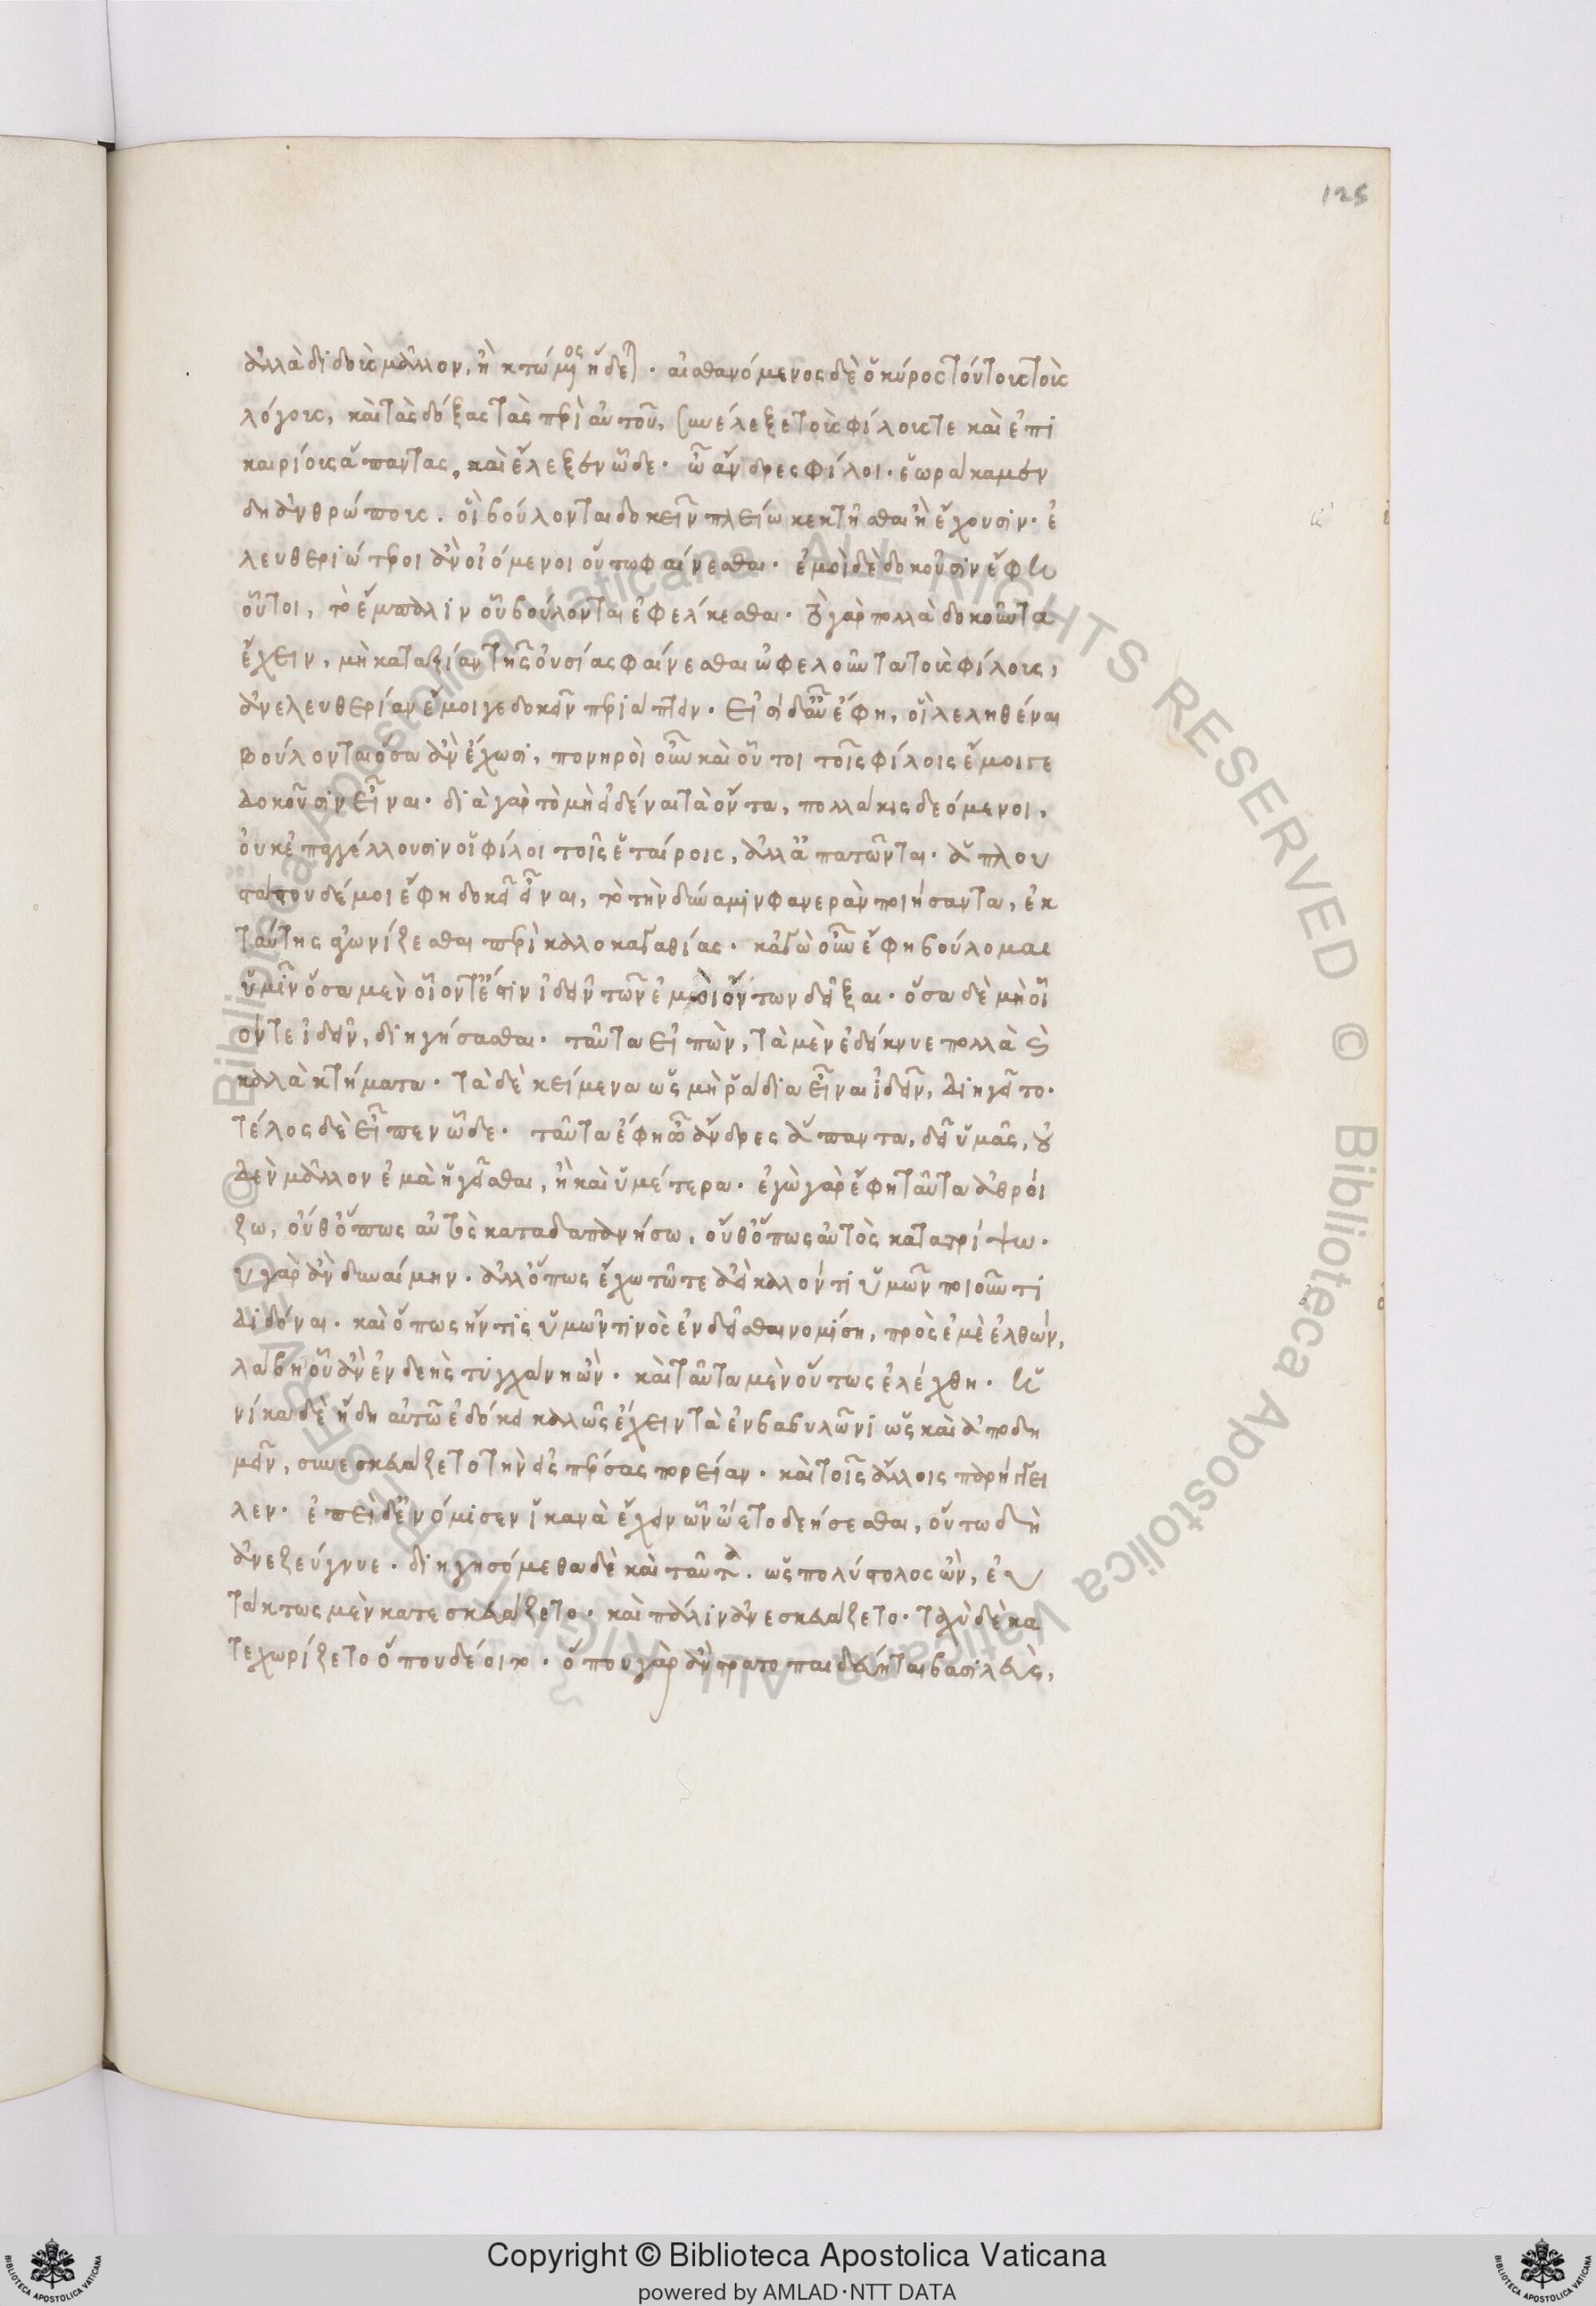 125
ἀλλὰ διδοὺς μᾶλλον, ἢ κτώμενος ἥδεται. αἰσθανόμενος δὲ ὁ κύρος τούτους τοὺς
λόγους, καὶ τὰς δόξας τὰς περὶ αὐτοῦ, συνέλεξε τοὺς φίλους τε καὶ ἐπι
καιρίους ἅπαντας, καὶ ἔλεξεν ὧδε. ὦ ἄνδρες φίλοι. ἑώρακα μὲν
δὴ ἀνθρώπους. οἳ βούλονται δοκεῖν πλείω κεκτῆσθαι ἢ ἔχουσιν. ἐ
λευθεριώτεροι ἂν οἰόμενοι οὕτω φαίνεσθαι. ἐμοὶ δὲ δοκοῦσιν ἔφη
οὗτοι, τὸ ἔμπαλιν οὗ βούλονται ἐφέλκεσθαι. τὸ γὰρ πολλὰ δοκοῦντα
ἔχειν, μὴ κατ' ἀξίαν τῆς οὐσίας φαίνεσθαι ὠφελοῦντα τοὺς φίλους,
ἀνελευθερίαν ἔμοιγε δοκεῖν περιάπτειν. εἰσὶ δ' αὖ ἔφη, οἳ λεληθέναι
βούλονται ὅσα ἂν ἔχωσι, πονηροὶ οὖν καὶ οὗτοι τοῖς φίλοις ἔμοιγε
δοκοῦσιν εἶναι. διὰ γὰρ τὸ μὴ εἰδέναι τὰ ὄντα, πολλάκις δεόμενοι,
οὐκ ἐπαγγέλλουσιν οἱ φίλοι τοῖς ἑταίροις, ἀλλ' ἀπατῶνται. ἁπλου
στάτου δέ μοι ἔφη δοκεῖ εἶναι, τὸ τὴν δύναμιν φανερὰν ποιήσαντα, ἐκ
ταύτης ἀγωνίζεσθαι περὶ καλοκαγαθίας. κἀγὼ οὖν ἔφη βούλομαι
ὑμῖν ὅσα μὲν οἷόν τ' ἐστὶν ἰδεῖν τῶν ἐμοὶ ὄντων δεῖξαι. ὅσα δὲ μὴ οἷ
όν τε ἰδεῖν, διηγήσασθαι. ταῦτα εἰπὼν, τὰ μὲν ἐδείκνυε πολλὰ καὶ
καλὰ κτήματα. τὰ δὲ κείμενα ὡς μὴ ῥάδια εἶναι ἰδεῖν, διηγεῖτο.
τέλος δὲ εἶπεν ὧδε. ταῦτα ἔφη ὦ ἄνδρες ἅπαντα, δεῖ ὑμᾶς, οὐ
δὲν μᾶλλον ἐμὰ ἡγεῖσθαι, ἢ καὶ ὑμέτερα. ἐγὼ γὰρ ἔφη ταῦτα ἀθροί
ζω, οὔθ' ὅπως αὐτὸς καταδαπανήσω, οὔθ' ὅπως αὐτὸς κατατρίψω.
οὐ γὰρ ἂν δυναίμην. ἀλλ' ὅπως ἔχω τῶ τε ἀεὶ καλόν τι ὑμῶν ποιοῦντι
διδόναι. καὶ ὅπως ἤν τις ὑμῶν τινὸς ἐνδεῖσθαι νομίση, πρὸς ἐμὲ ἐλθών,
λάβη οὗ ἂν ἐνδεὴς τυγχάνη ὤν. καὶ ταῦτα μὲν οὕτως ἐλέχθη. ἡ
νίκα δὲ ἤδη αὐτῶ ἐδόκει καλῶς ἔχειν τὰ ἐν βαβυλῶνι ὡς καὶ ἀποδη
μεῖν, συνεσκευάζετο τὴν εἰς πέρσας πορείαν. καὶ τοῖς ἄλλοις παρήγγει
λεν. ἐπεὶ δ' ἐνόμισεν ἱκανὰ ἔχειν ὧν ὤετο δεήσεσθαι, οὕτω δὴ
ἀνεζεύγνυε. διηγησόμεθα δὲ καὶ ταῦτα. ὡς πολύστολος ὢν, εὐ
τάκτως μὲν κατεσκευάζετο. καὶ πάλιν ἀνεσκευάζετο. ταχὺ δὲ κα
τεχωρίζετο ὅπου δέοιτο. ὅπου γὰρ ἂν στρατοπαιδεύηται βασιλεὺς,
Copyright © Biblioteca Apostolica Vaticana
powered by AMLAD·NTT DATA